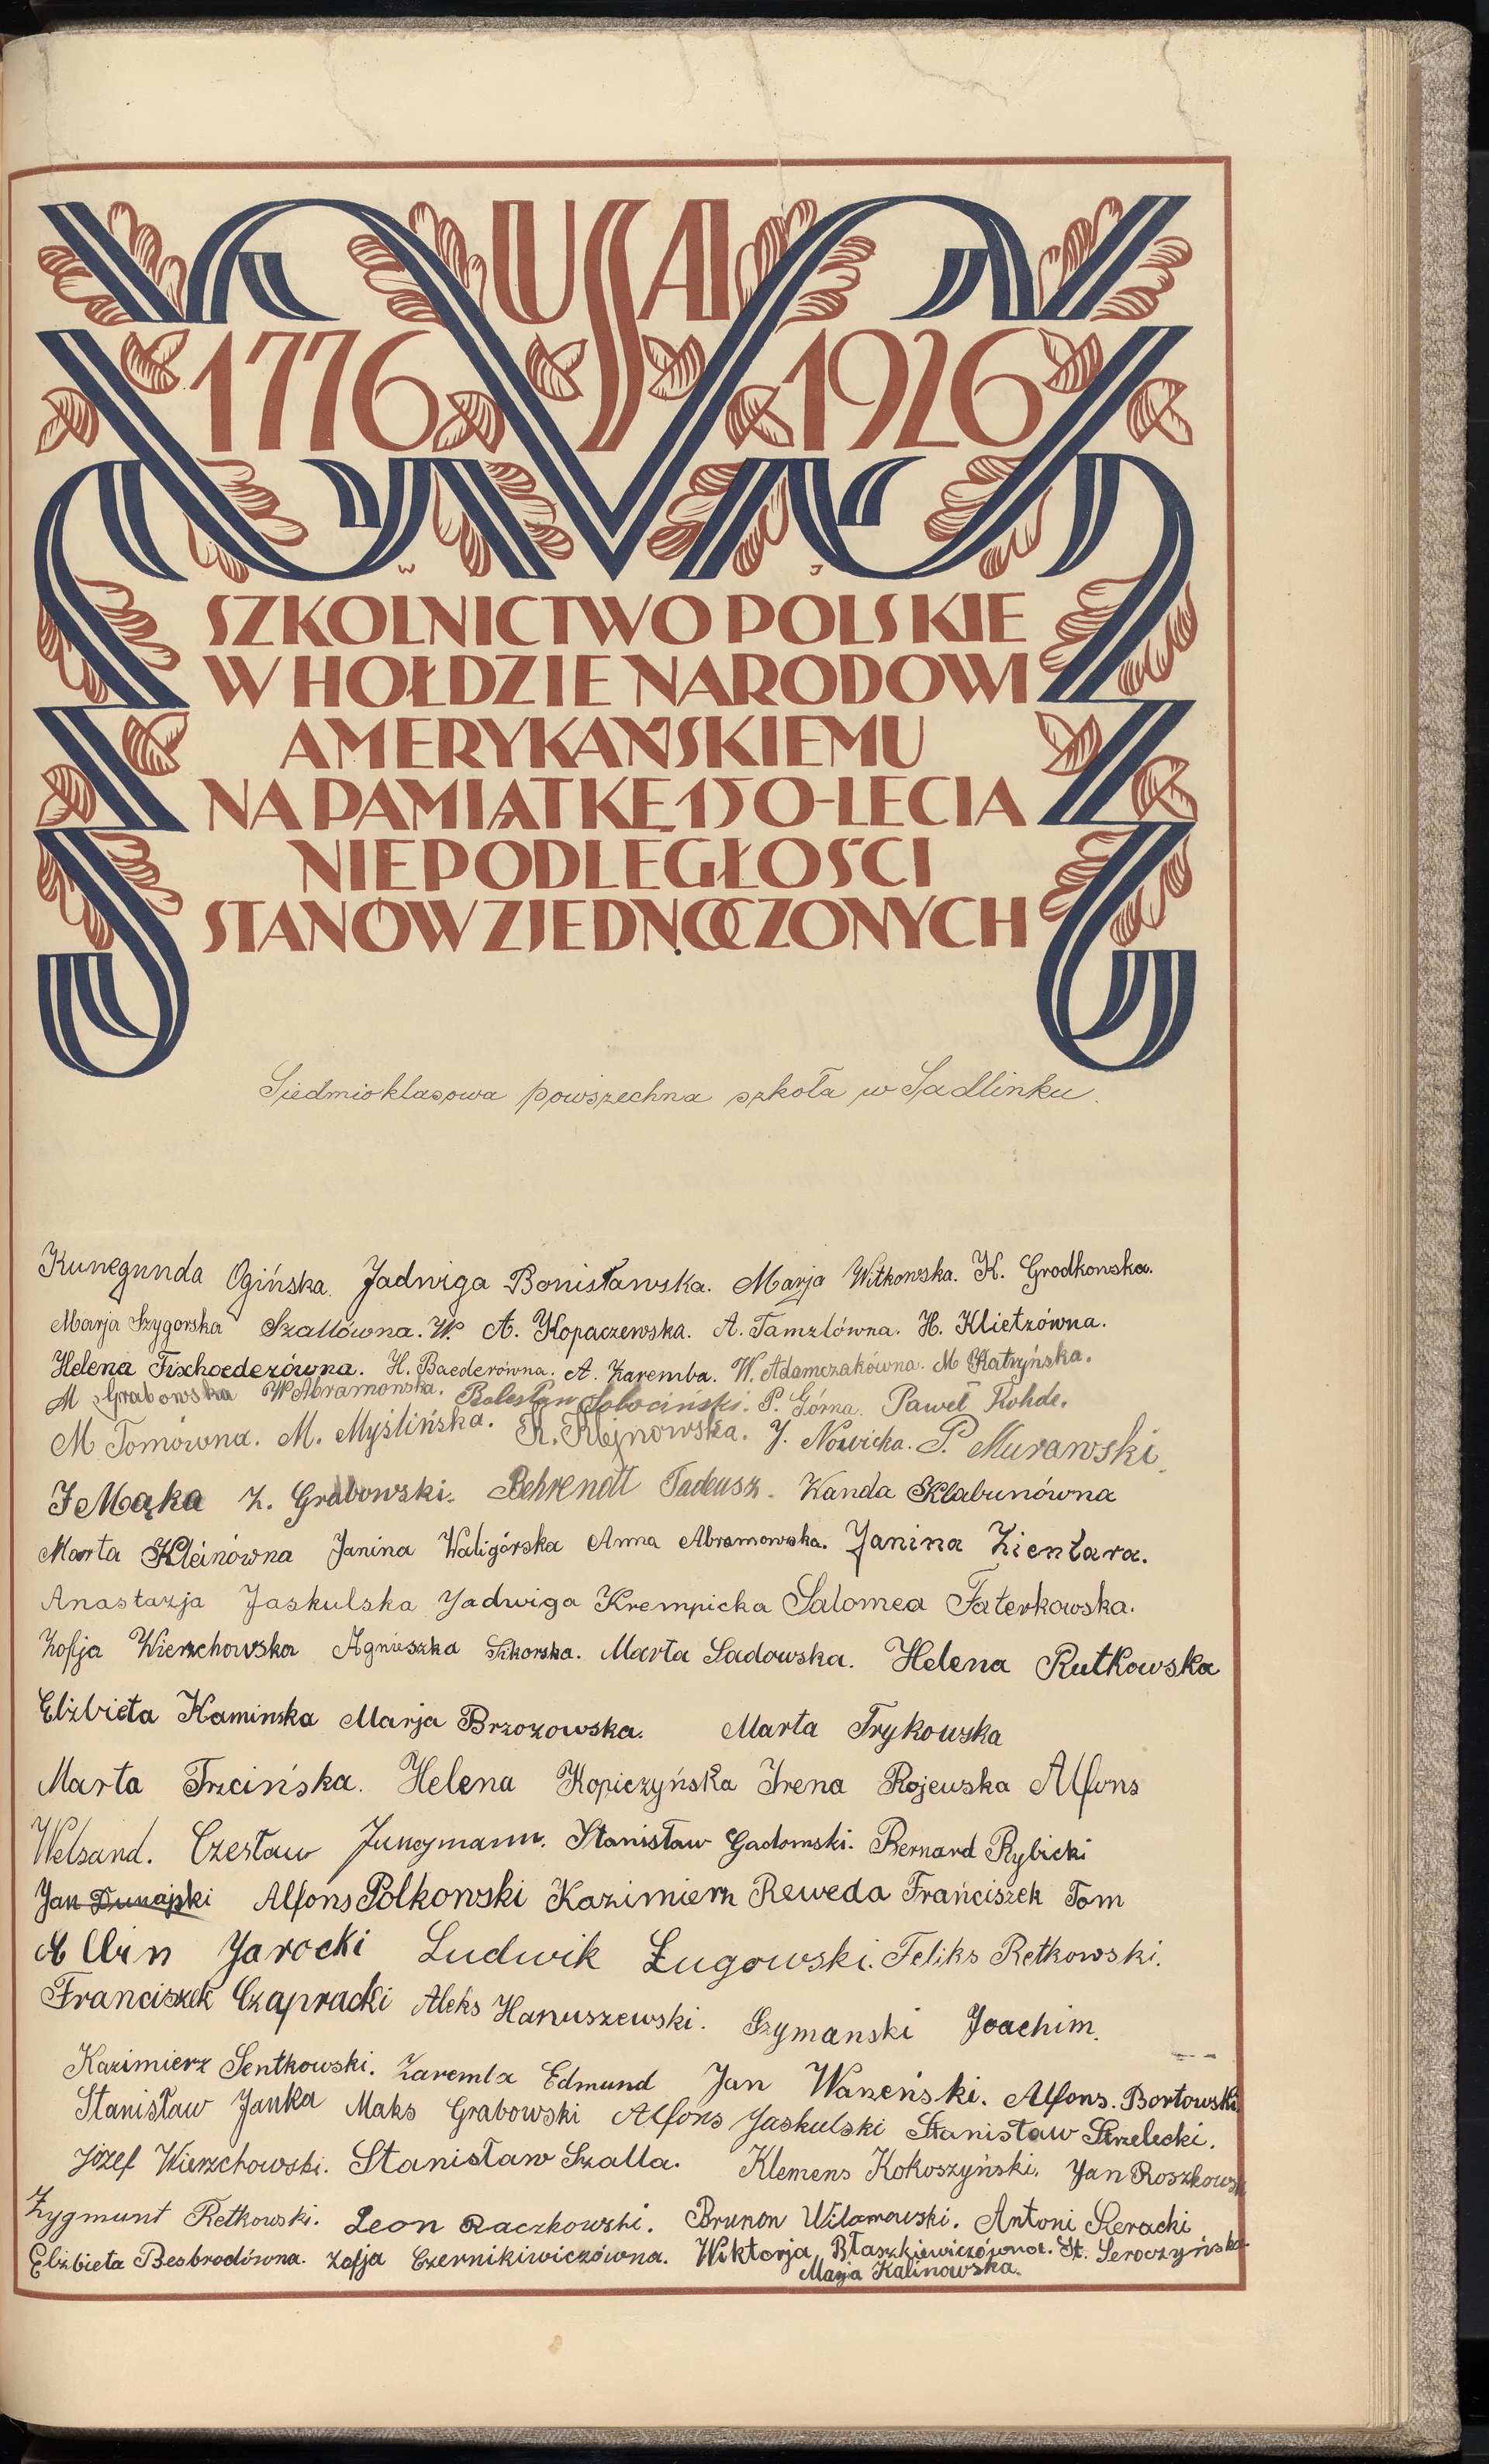 USA
1776 1926
W J
SZKOLNICTWO POLSKIE
W HOŁDZIE NARODOWI
AMERYKAŃSKIEMU
NA PAMIĄTKĘ 150-LECIA
NIEPODLEGŁOŚCI
STANÓW ZJEDNOCZONYCH
Siedmioklasowa powszechna szkoła w Sadlinku.
Kunegunda Ogińska. Jadwiga Bonisławska. Marja Witkowska. K. Grodkowska.
Marja Szygorska Szallówna. W. A. Kopaczewska. A. Tamzlówna. H. Klietzówna.
Helena Fischoederówna. H. Baederówna. A. Zaremba. W. Adamczakówna. M Katryńska.
M Grabowska W Abramowska. Bolesław Sobociński. P. Górna. Paweł Rohde.
M Tomówna. M. Myślińska. K. Klejnowska. J. Nowicka. P. Murawski.
J Mąka Z. Grabowski. Behrendt Tadeusz. Wanda Sklabunówna
Marta Kleinówna Janina Waligórska Anna Abramowska. Janina Zientara.
Anastazja Jaskulska Jadwiga Krempicka Salomea Faterkowska.
Zofja Wierzchowska Agnieszka Sikorska. Marta Sadowska. Helena Rutkowska
Elżbieta Kaminska Marja Brzozowska. Marta Trykowska
Marta Trzcińska. Helena Kopiczyńska Irena Rojewska Alfons
Welsand. Czesław Jungmann. Stanisław Gadomski. Bernard Rybicki
Jan Dunajski Alfons Polkowski Kazimierz Reweda Franciszek Tom
Albin Jarocki Ludwik Ługowski. Feliks Retkowski.
Franciszek Czapracki Aleks Hanuszewski. Szymanski Joachim.
Kazimierz Sentkowski. Zaremba Edmund Jan Wazeński. Alfons. Bortowski.
Stanisław Janka Maks Grabowski Alfons Jaskulski Stanisław Strzelecki.
Józef Wierzchowski. Stanisław Szalla. Klemens Kokoszyński. Jan Roszkowski
Zygmunt Retkowski. Leon Raczkowski. Brunon Wilamowski. Antoni Sieracki
Elżbieta Besbrodówna. Zofja Czernikiwiczówna. Wiktorja Błaszkiewiczówna. St. Seroczyńska
Marja Kalinowska.